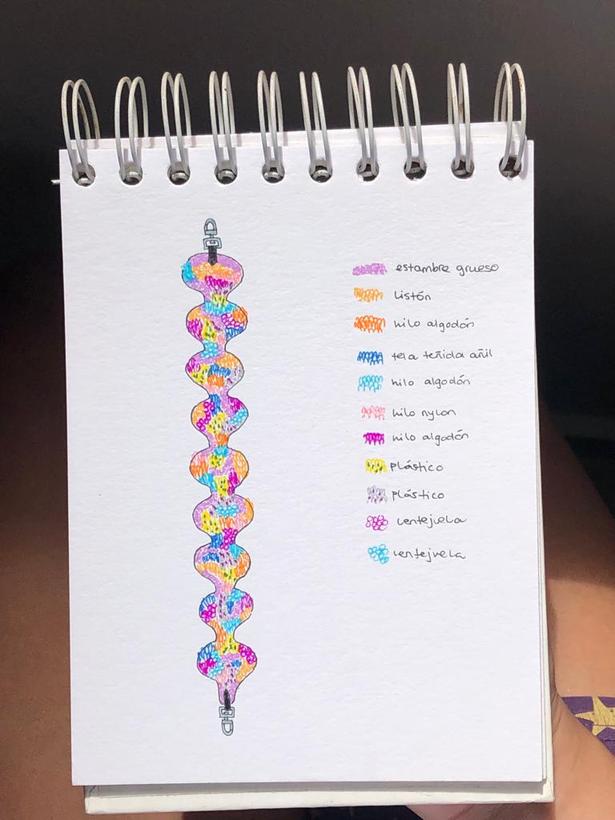 estambre grueso
listón
hilo algodón
tela teñida añil
hilo algodón
hilo nylon
hilo algodón
plástico
plástico
lentejuela
lentejuela